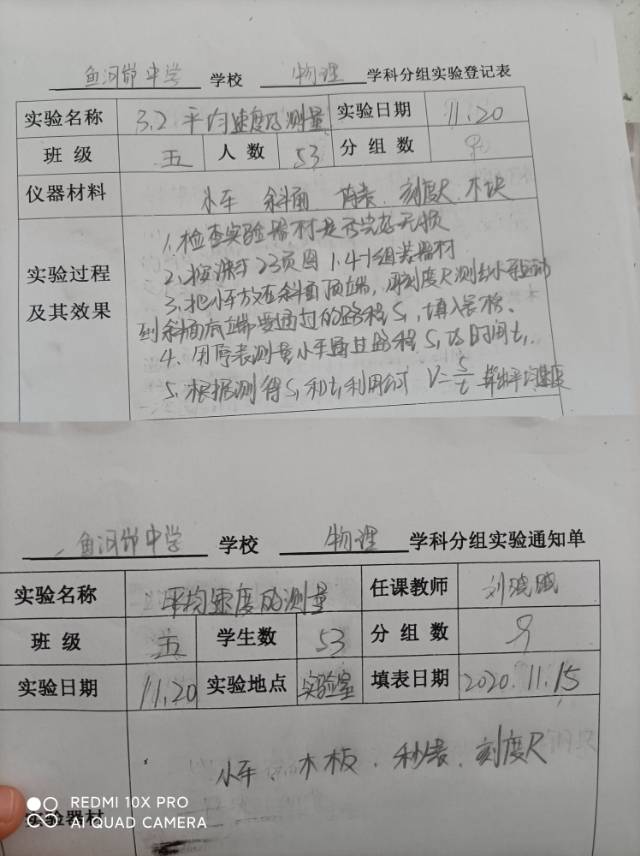 鱼河峁中学 学校 物理 学科分组实验登记表
实验名称 3.2 平均速度的测量 实验日期 11.20
班 级 五 人 数 53 分 组 数
仪器材料 小车 斜面 停表 刻度尺 木块
实验过程
及其效果
1、检查实验器材是否完好无损
2、按课本23页图1.4-1组装器材
3、把小车放在斜面顶端，用刻度尺测出小车
到斜面底端要通过的路程S₁，填入表格、
4、用停表测量小车通过路程S₁的时间t₁.
5、根据测得S₁和t₁利用公式 V=S/t 算出平均速度
鱼河峁中学 学校 物理 学科分组实验通知单
实验名称 平均速度的测量 任课教师
班 级 五 学生数 53 分 组 数
实验日期 11.20 实验地点 实验室 填表日期 2020.11.15
小车、木板、秒表、刻度尺
实验器材
REDMI 10X PRO
AI QUAD CAMERA